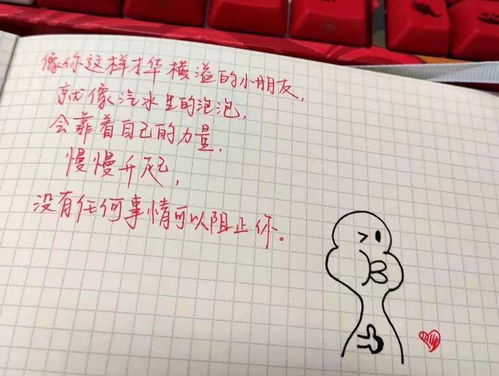 像你这样才华横溢的小朋友，
就像汽水里的泡泡，
会靠着自己的力量，
慢慢升起，
没有任何事情可以阻止你。